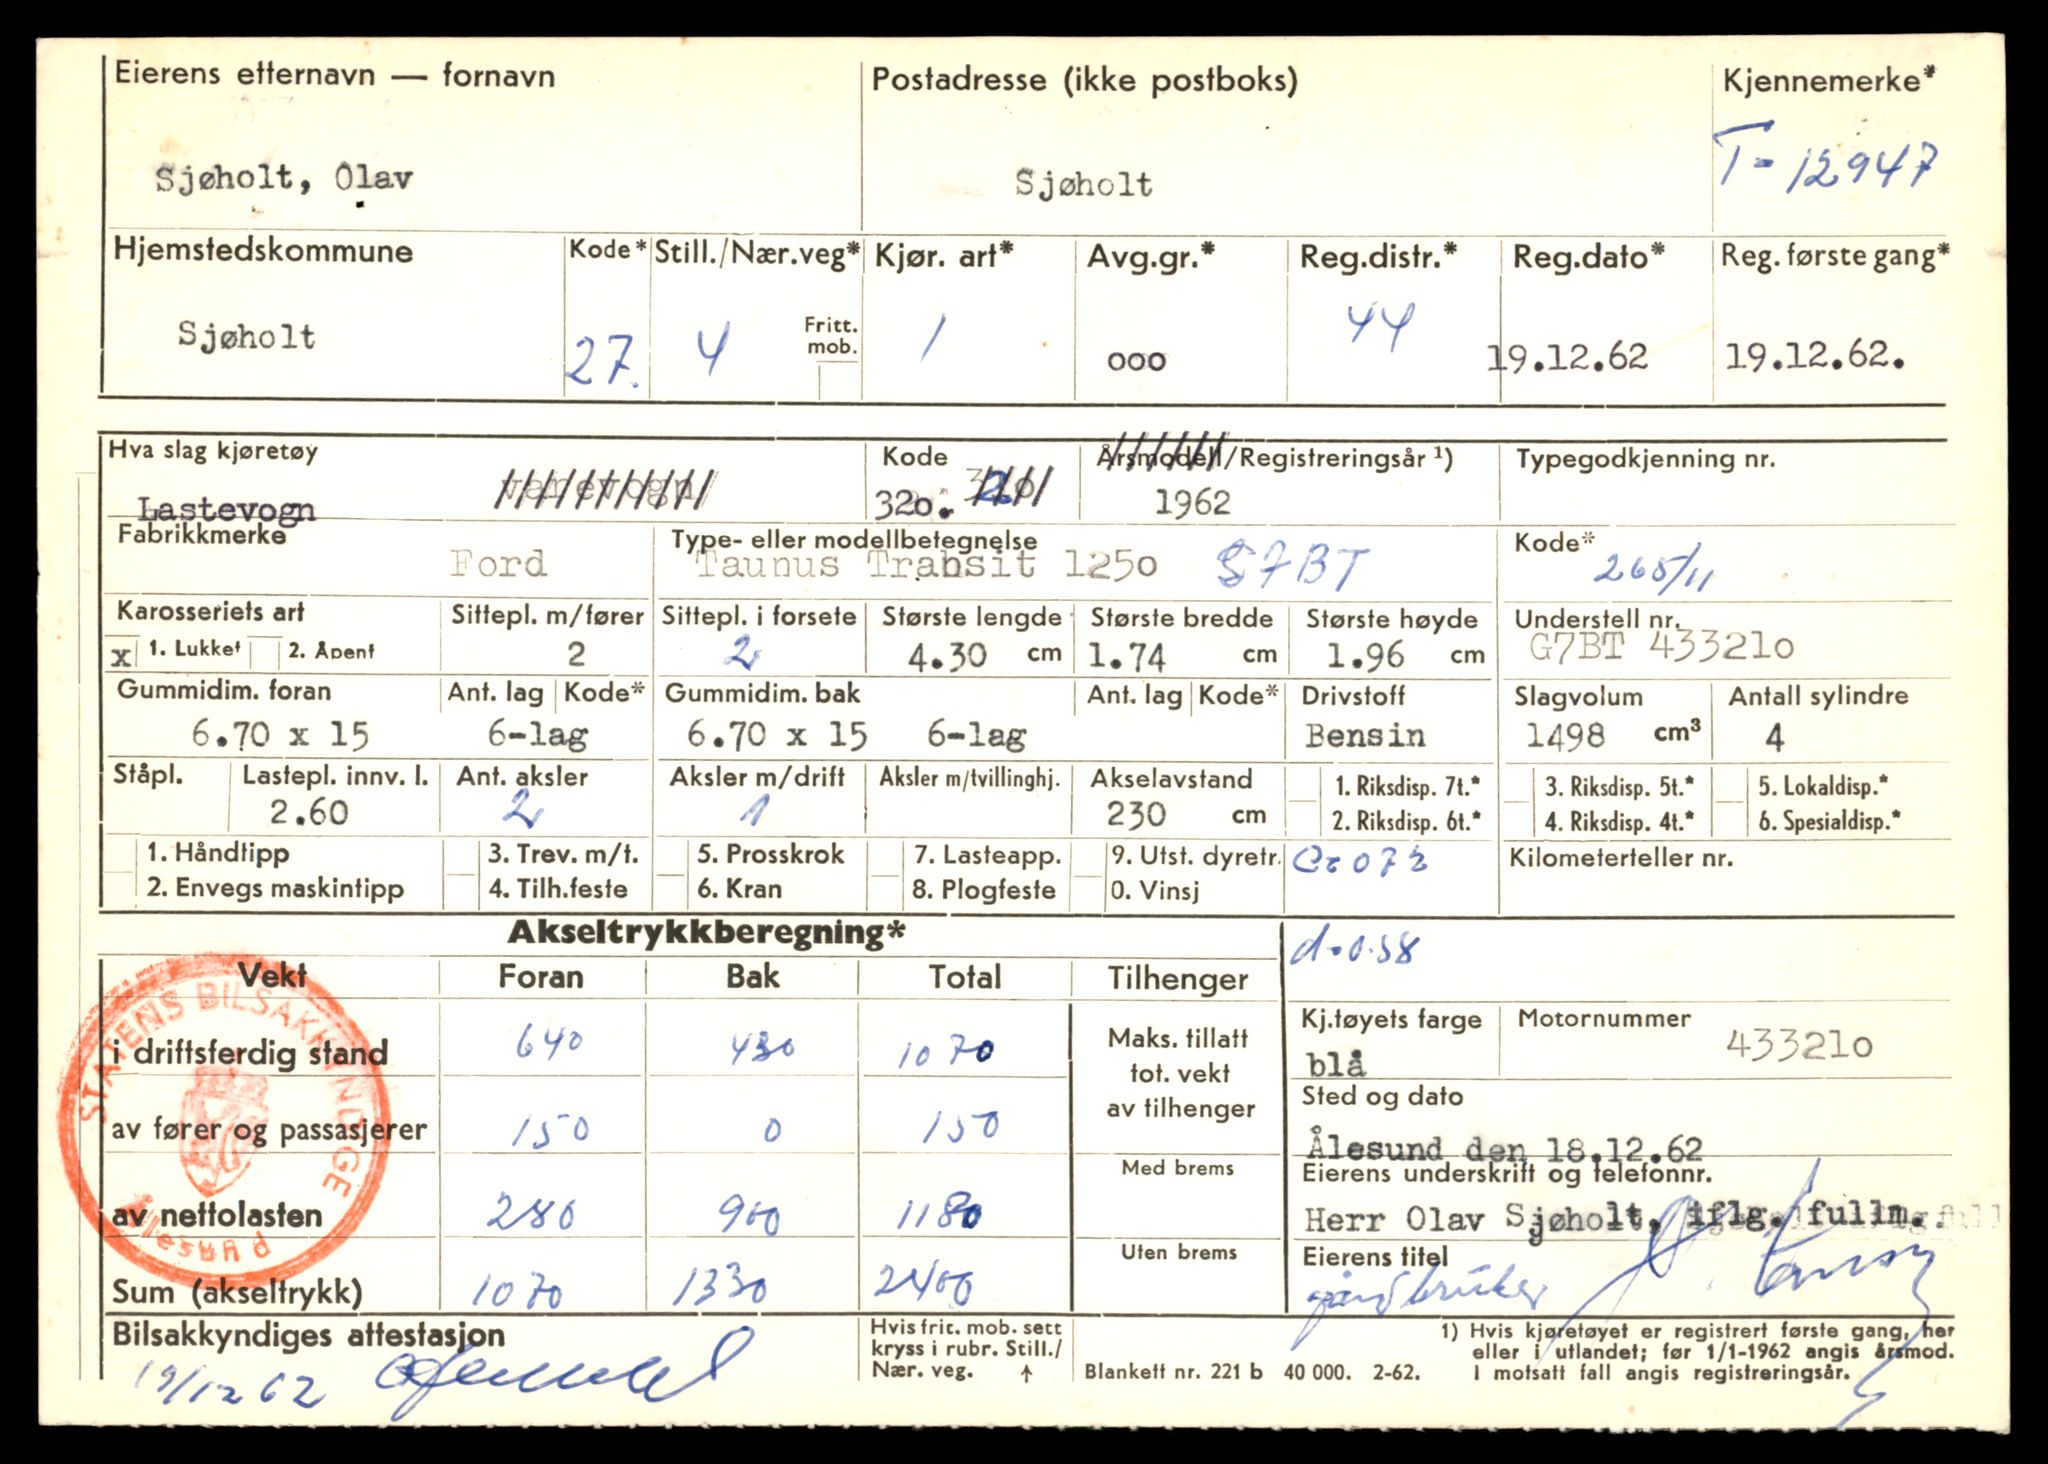 Eierens etternavn — fornavn
Postadresse (ikke postboks)
Kjennemerke*
Sjøholt, Olav
Sjøholt
T-12947
Hjemstedskommune
Kode*
Still./Nær.veg*
Kjør. art*
Avg.gr.*
Reg.distr.*
Reg.dato*
Reg. første gang*
Sjøholt
27.
4
Fritt. mob.
1
ooo
44
19.12.62
19.12.62.
Hva slag kjøretøy
Kode
Årsmodell/Registreringsår ¹)
Typegodkjenning nr.
Lastevogn
varevogn
32o.
1962
Fabrikkmerke
Type- eller modellbetegnelse
Kode*
Ford
Taunus Transit 125o
G7BT
265/11
Karosseriets art
Sittepl. m/fører
Sittepl. i forsete
Største lengde
Største bredde
Største høyde
Understell nr.
x 1. Lukket
2. Åpent
2
2
4.30 cm
1.74 cm
1.96 cm
G7BT 43321o
Gummidim. foran
Ant. lag
Kode*
Gummidim. bak
Ant. lag
Kode*
Drivstoff
Slagvolum
Antall sylindre
6.70 x 15
6-lag
6.70 x 15
6-lag
Bensin
1498 cm³
4
Ståpl.
Lastepl. innv. l.
Ant. aksler
Aksler m/drift
Aksler m/tvillinghj.
Akselavstand
1. Riksdisp. 7t.*
3. Riksdisp. 5t.*
5. Lokaldisp.*
2.60
2
1
230 cm
2. Riksdisp. 6t.*
4. Riksdisp. 4t.*
6. Spesialdisp.*
1. Håndtipp
3. Trev. m/t.
5. Prosskrok
7. Lasteapp.
9. Utst. dyretr.
Kilometerteller nr.
2. Envegs maskintipp
4. Tilh.feste
6. Kran
8. Plogfeste
0. Vinsj
Akseltrykkberegning*
d-0.58
Vekt
Foran
Bak
Total
Tilhenger
i driftsferdig stand
640
430
1070
Maks. tillatt tot. vekt av tilhenger
Kj.tøyets farge
Motornummer
blå
43321o
av fører og passasjerer
150
0
150
Sted og dato
Ålesund den 18.12.62
Med brems
Eierens underskrift og telefonnr.
av nettolasten
280
900
1180
Herr Olav Sjøholt, iflg. fullm.
Uten brems
Eierens titel
Sum (akseltrykk)
1070
1330
2400
gårdbruker
STATENS BILSAKKYNDIGE
Ålesund
Bilsakkyndiges attestasjon
19/12 62
Hvis frit. mob. sett
kryss i rubr. Still./
Nær. veg. ↑
Blankett nr. 221 b 40 000. 2-62.
1) Hvis kjøretøyet er registrert første gang, her
eller i utlandet; før 1/1-1962 angis årsmod.
I motsatt fall angis registreringsår.